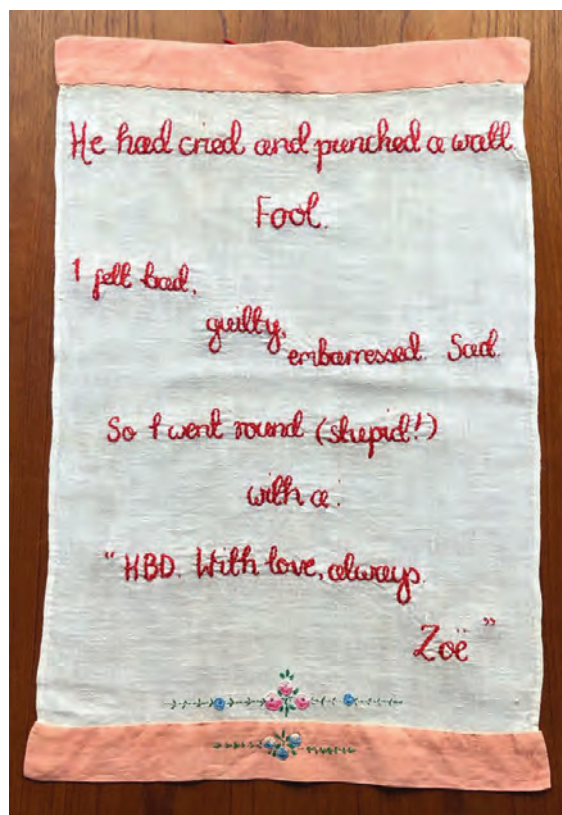 He had cried and punched a wall
Fool.
I felt bad,
guilty,
embarressed. Sad.
So I went round (stupid!)
with a:
"HBD. With love, always.
Zoë"